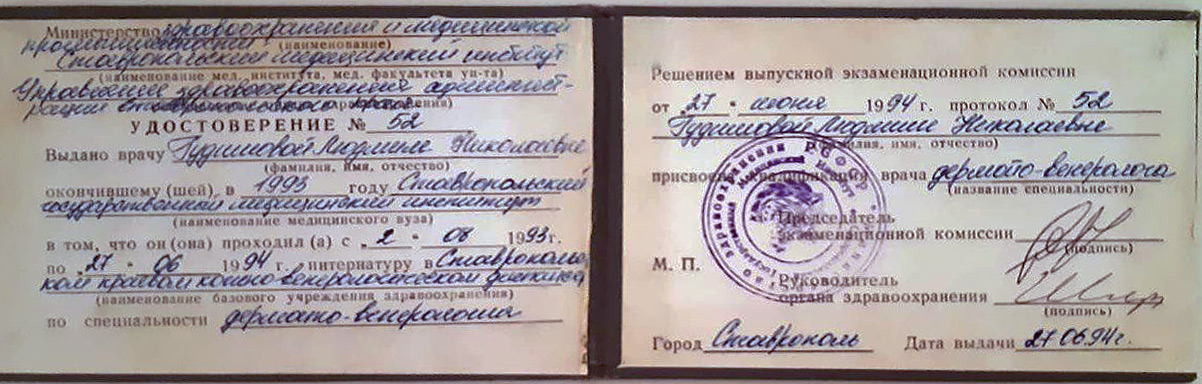 Министерство здравоохранения и медицинской
промышленности (наименование)
Ставропольский медицинский институт
(наименование мед. института, мед. факультета ун-та)
Управление здравоохранения админист-
рации Ставропольского края
УДОСТОВЕРЕНИЕ № 52
Выдано врачу Гудишовой Людмиле Николаевне
(фамилия, имя, отчество)
окончившему (шей), в 1993 году Ставропольский
государственной медицинский институт
(наименование медицинского вуза)
в том, что он (она) проходил (а) с „2“ 08 1993г.
по „27“ 06 1994 г. интернатуру в Ставрополь-
ком краевом кожно-венерологическом диспансере
(наименование базового учреждения здравоохранения)
по специальности дермато-венерология
Решением выпускной экзаменационной комиссии
от „27“ июня 1994 г. протокол № 52
Гудишовой Людмиле Николаевне
(фамилия, имя, отчество)
присвоена квалификация врача дермато-венеролога
(название специальности)
Председатель
экзаменационной комиссии
(подпись)
М. П.
Руководитель
органа здравоохранения
(подпись)
Город Ставрополь Дата выдачи 27.06.94г.